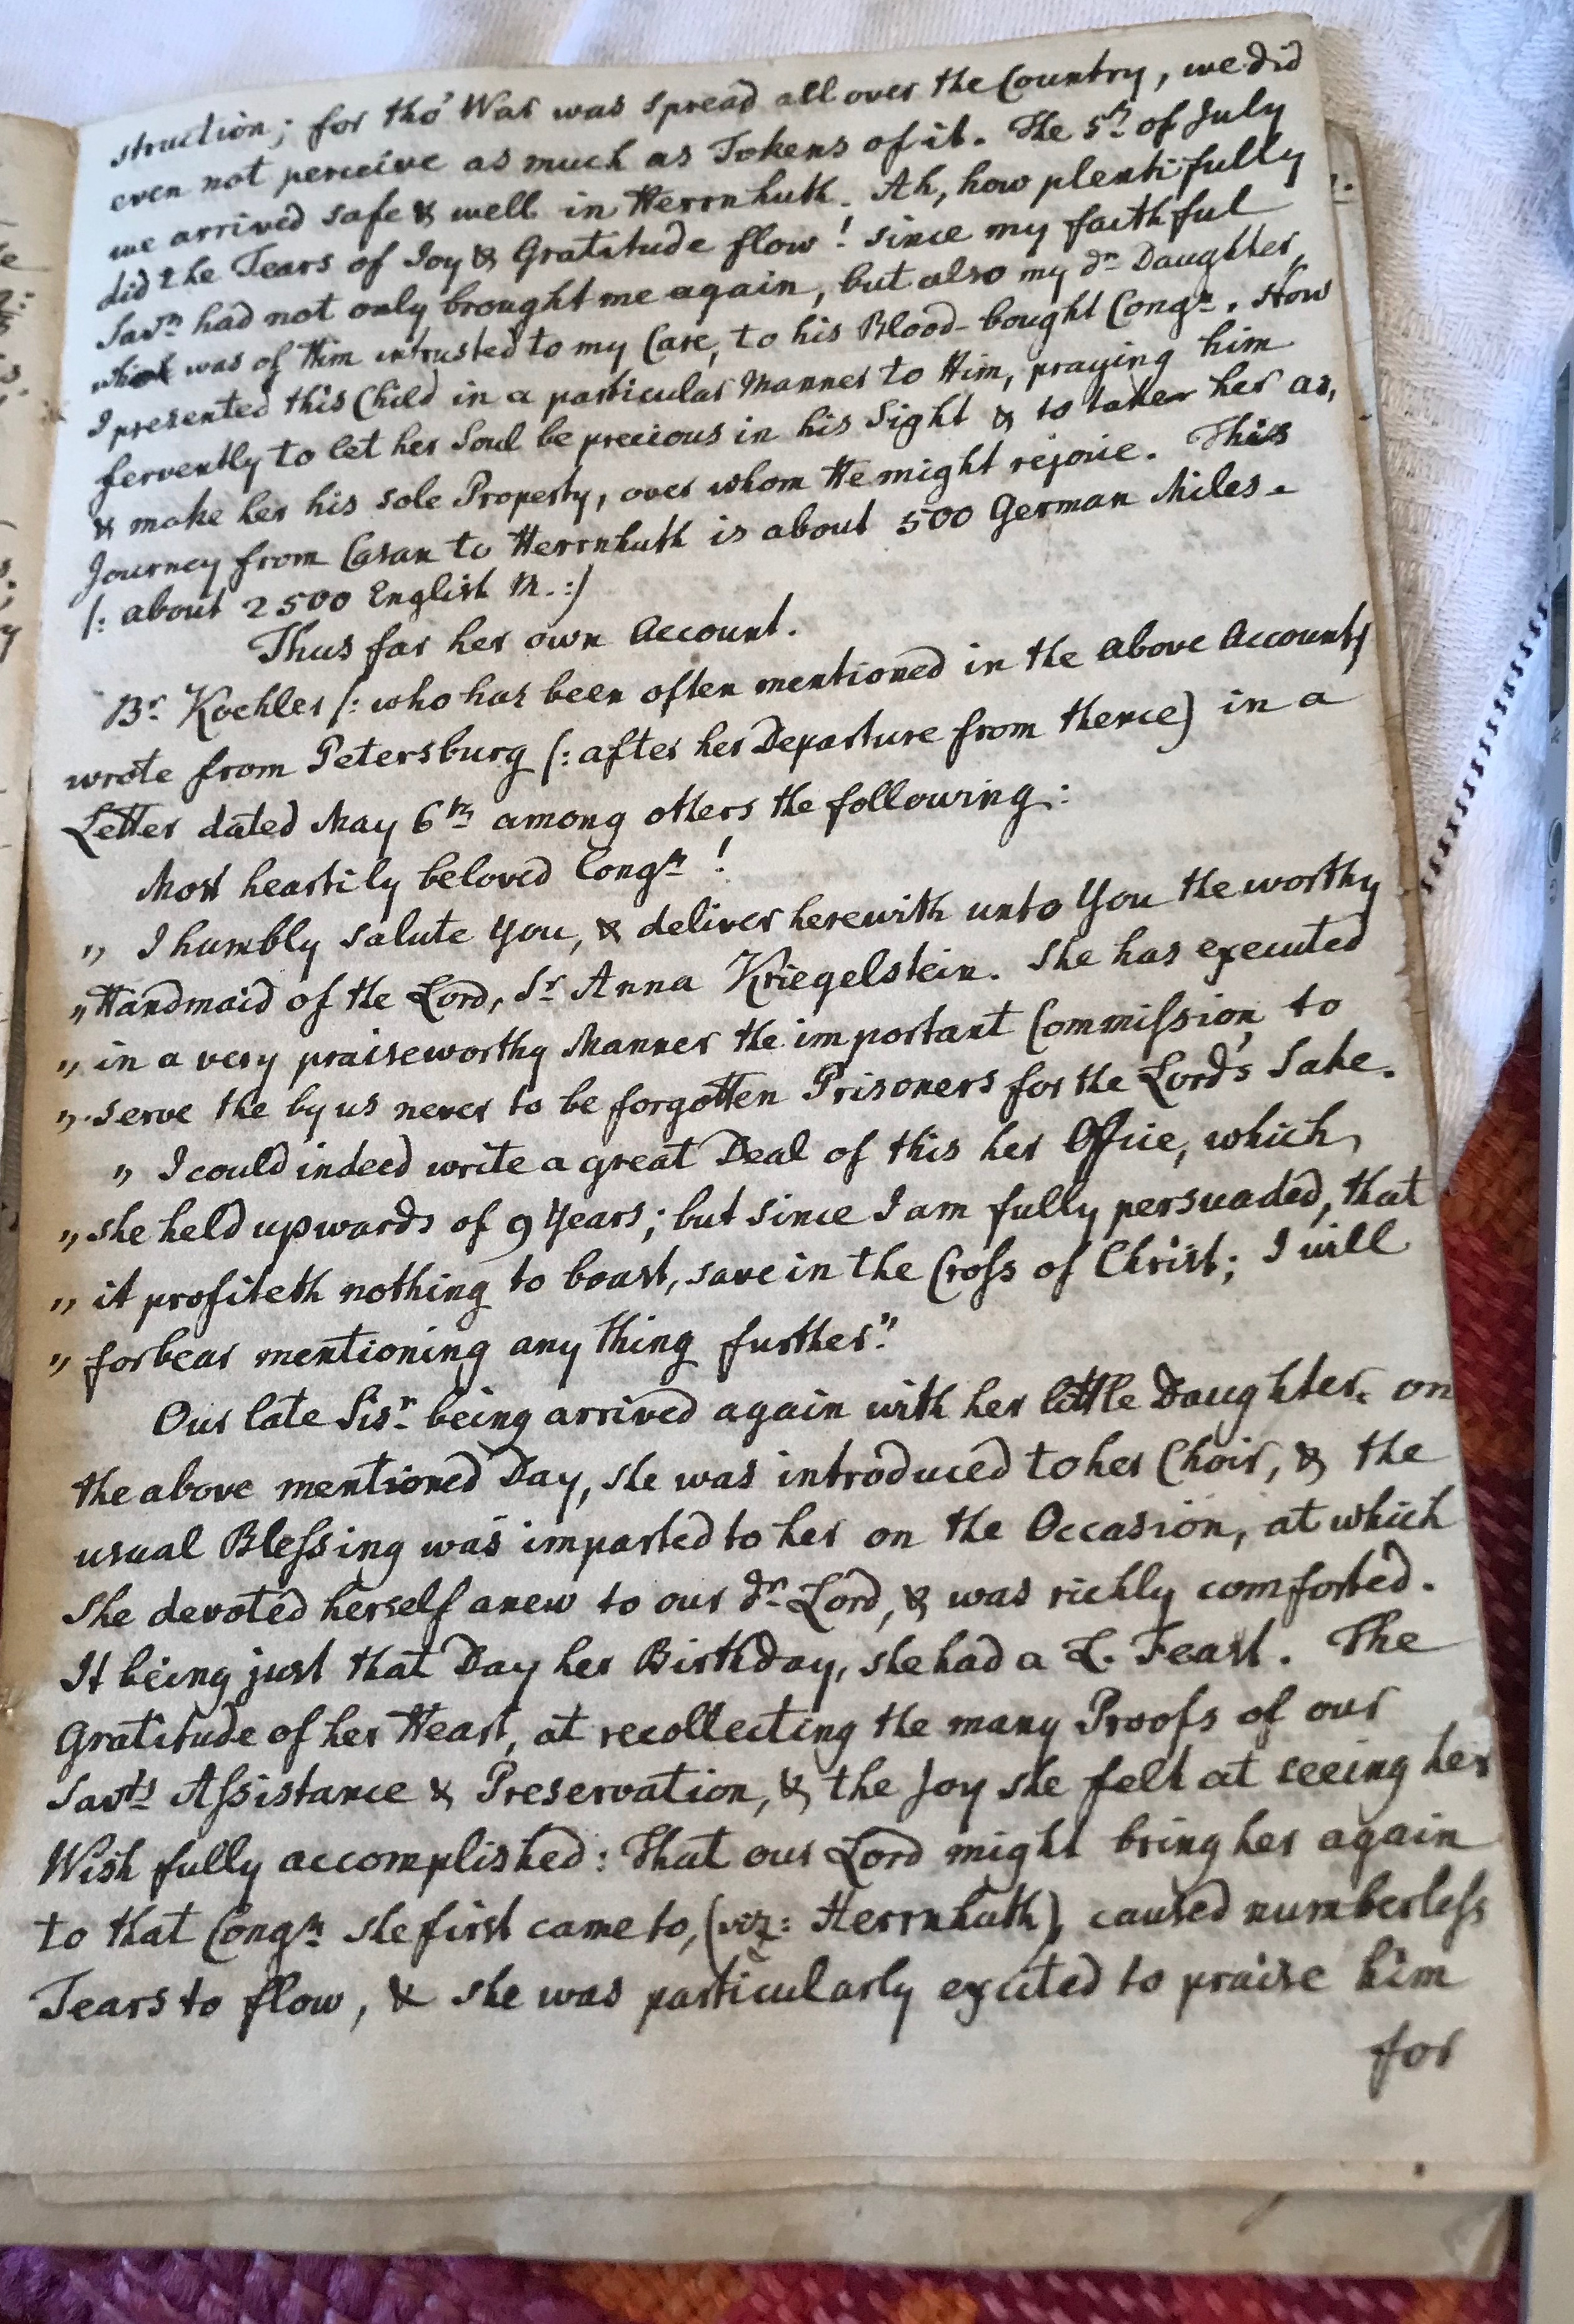 struction; for tho' War was spread all over the Country, we did
even not perceive as much as Tokens of it. The 5th of July
we arrived safe & well in Herrnhuth. Ah, how plentifully
did the Tears of Joy & Gratitude flow! since my faithful
Savr had not only brought me again, but also my dr Daughter,
which was of Him intrusted to my Care, to his Blood-bought Congn. How
I presented this Child in a particular Manner to Him, praying him
fervently to let her Soul be precious in his Sight & to take her as,
& make her his sole Property, over whom He might rejoice. This
Journey from Casan to Herrnhuth is about 500 German Miles.
/: about 2500 English M. :/
Thus far her own Account.
Br. Koehler /: who has been often mentioned in the above Account)
wrote from Petersburg (: after her Departure from thence) in a
Letter dated May 6th among others the following:
Most heartily beloved Congn!
" I humbly salute You, & deliver herewith unto You the worthy
" Handmaid of the Lord, Sr Anna Kriegelstein. She has executed
" in a very praiseworthy Manner the important Commission, to
" serve the by us never to be forgotten Prisoners for the Lord's Sake.
" I could indeed write a great Deal of this her Office, which
" she held upwards of 9 Years; but since I am fully persuaded, that
" it profiteth nothing to boast, save in the Cross of Christ; I will
" forbear mentioning any thing further."
Our late Sisr being arrived again with her little Daughter on
the above mentioned Day, she was introduced to her Choir, & the
usual Blessing was imparted to her on the Occasion, at which
She devoted herself anew to our dr Lord, & was richly comforted.
It being just that Day her Birthday, she had a L. Feast. The
Gratitude of her Heart, at recollecting the many Proofs of our
Savrs Assistance & Preservation, & the Joy she felt at seeing her
Wish fully accomplished: That our Lord might bring her again
to that Congn she first came to, (viz: Herrnhuth), caused numberless
Tears to flow, & she was particularly excited to praise him
for